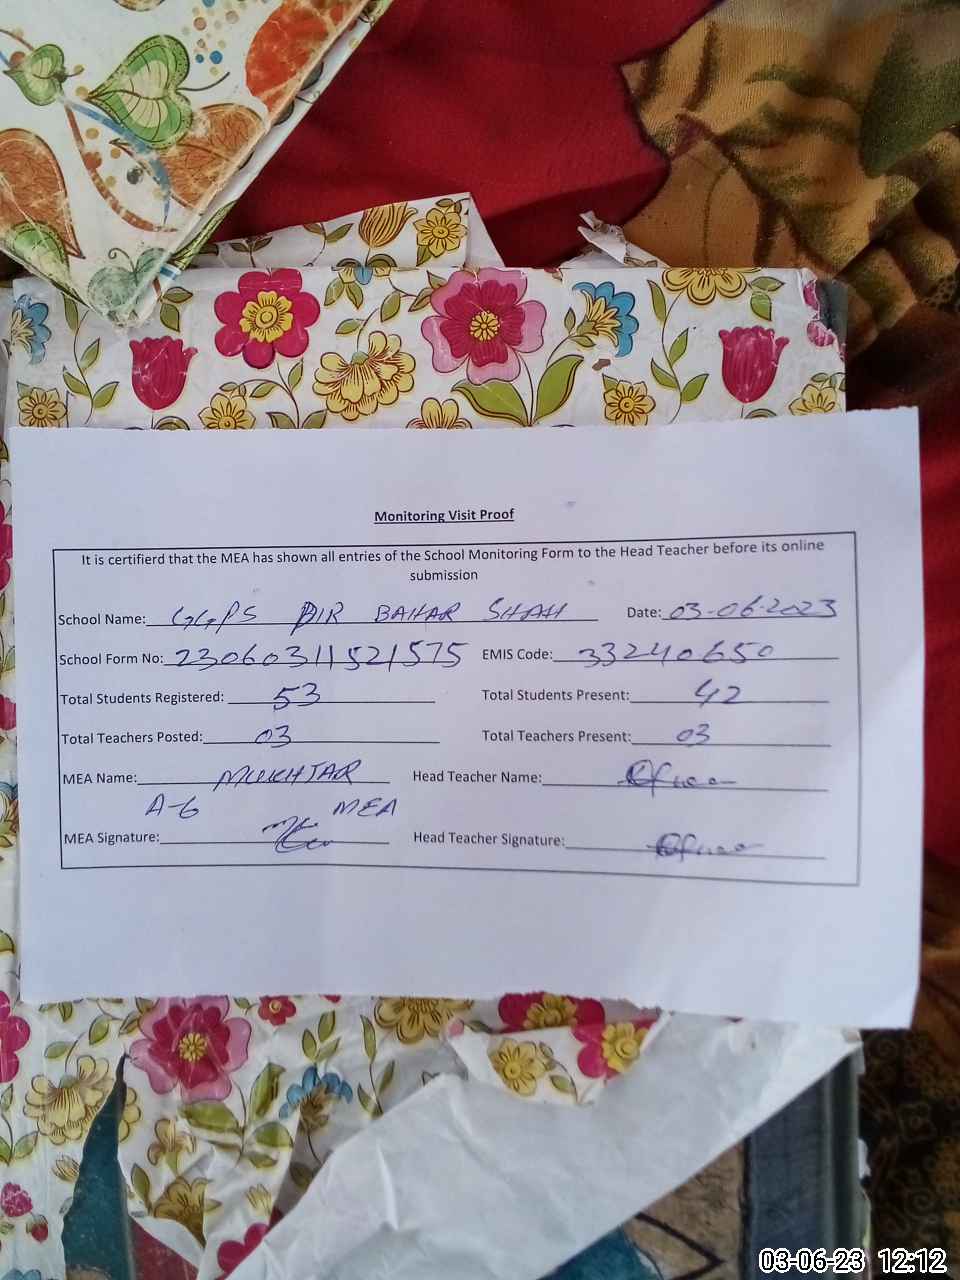 Monitoring Visit Proof
It is certifierd that the MEA has shown all entries of the School Monitoring Form to the Head Teacher before its online
submission
School Name: GGPS PIR BAHAR SHAH Date: 03-06-2023
School Form No: 23060311521575 EMIS Code: 33240650
Total Students Registered: 53 Total Students Present: 42
Total Teachers Posted: 03 Total Teachers Present: 03
MEA Name: MUKHTAR Head Teacher Name:
A-6 MEA
MEA Signature: Head Teacher Signature:
03-06-23 12:12